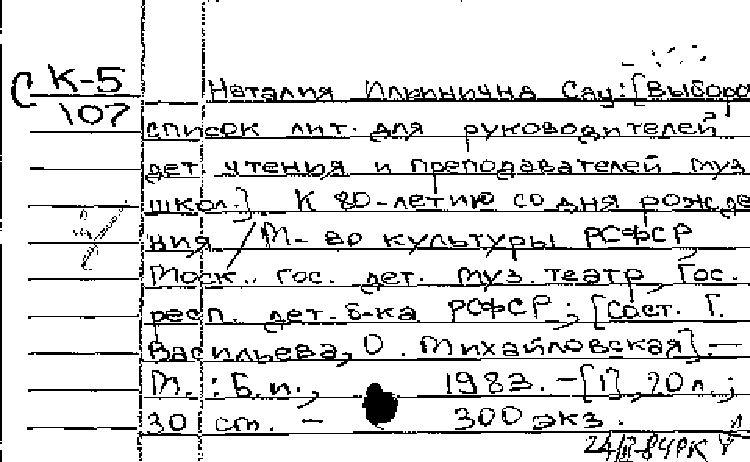 С К-5
107
Наталия Ильинична Сац: [Выбороч
список лит. для руководителей
дет. чтенья и преподавателей муз.
школ.] К 80-летию со дня рожде
ния / М-во культуры РСФСР,
Моск. гос. дет. муз. театр, Гос.
респ. дет. б-ка РСФСР; [Сост. Г.
Васильева, О. Михайловская]. —
М. : Б.и., 1983. - [1], 20 л.;
30 см. - 300 экз.